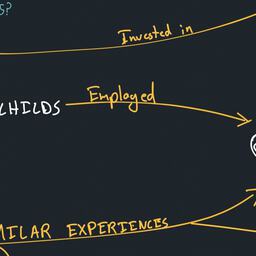 S?
Invested in
CHILDS
Employed
MILAR EXPERIENCES